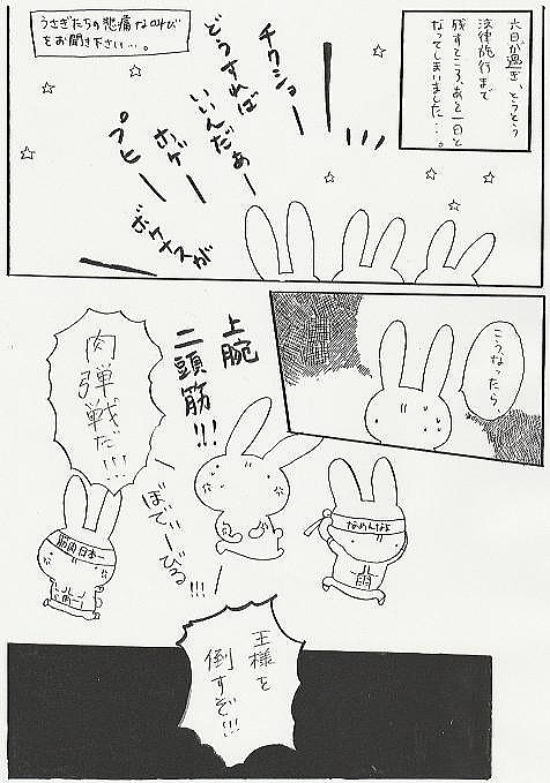 六日が過ぎ、とうとう
法律施行まで
残すところ、あと一日と
なってしまいました…。
うさぎたちの悲痛な叫び
をお聞き下さい…。
チクショー
どうすれば
いいんだぁー
ホゲー
プヒー
ボーナスが
こうなったら、
上腕
二頭筋!!!
肉弾戦だ!!!
ぼでぃーびる!!!
なめんなよ
筋肉日本一
王様を
倒すぞ!!!